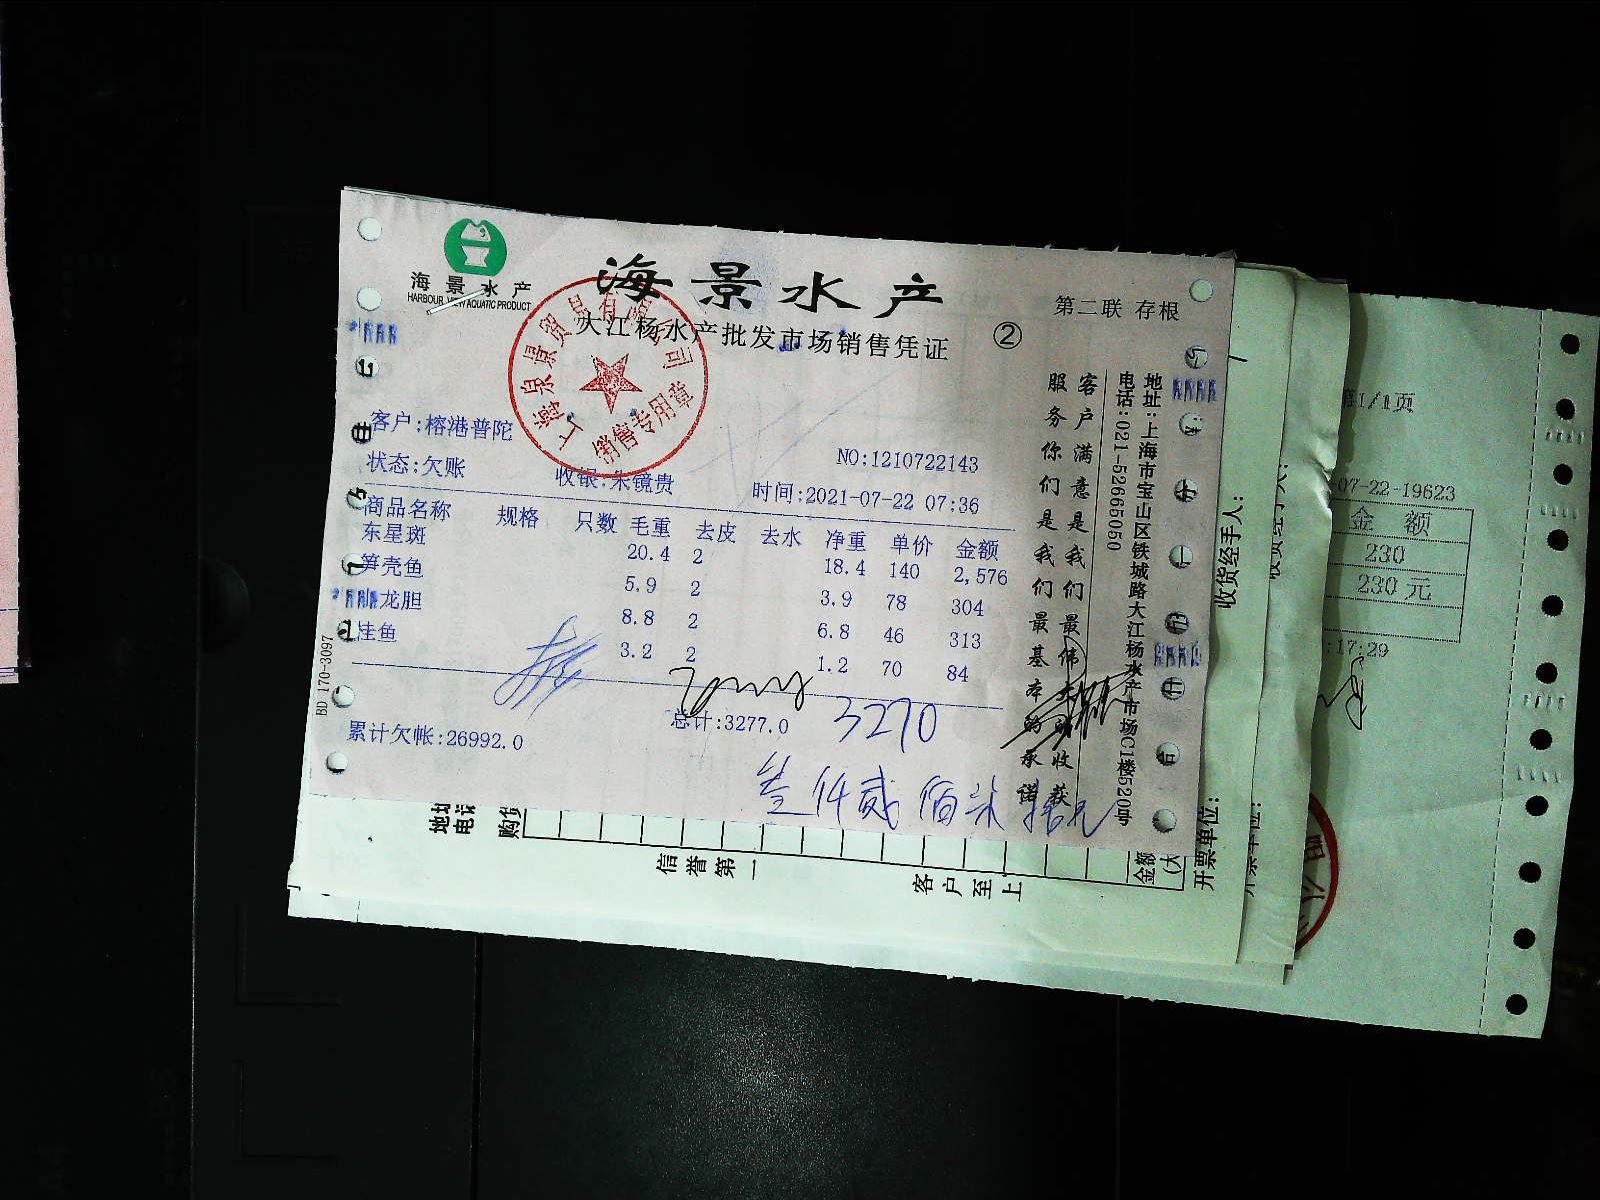 海景水产
HARBOUR VIEW AQUATIC PRODUCT
海景水产
大江杨水产批发市场销售凭证
②
第二联 存根
上海泉景贸易有限公司
销售专用章
客户:榕港普陀
NO:1210722143
状态:欠账 收银:朱镜贵 时间:2021-07-22 07:36
商品名称 规格 只数 毛重 去皮 去水 净重 单价 金额
东星斑 20.4 2 18.4 140 2,576
笋壳鱼 5.9 2 3.9 78 304
龙胆 8.8 2 6.8 46 313
桂鱼 3.2 2 1.2 70 84
总计:3277.0 3270
累计欠帐:26992.0
叁仟贰佰柒拾元
客户满意是我们最伟大的收获
服务你们是我们最基本的承诺
地址:上海市宝山区铁城路大江杨水产市场C1楼520号
电话:021-52665050
BD 170-3097
收货经手人:
开票单位:
地址
电话
购货
信誉第一
客户至上
金额
(大
1/1页
07-22-19623
金额
230
230元
:17:29